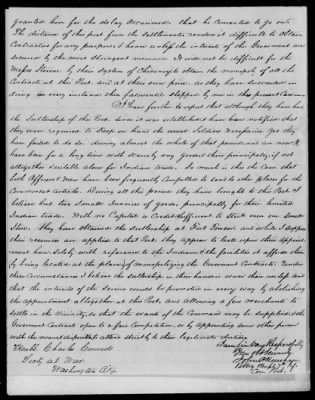 granted him for the delay occasioned that he consented to go on.
The distance of this post from the settlements renders it difficult to obtain
Contractors for any purpose & hence unless the interests of the Government are
secured by the most stringent measures it will not be difficult for the
by their system of to obtain the monopoly of all the
Contracts at this Post and at their own price, as they have succeeded in
doing in every instance this by the present Command
I have further to report that although they have had
the Sutlership of the Post, since it was established & have been notified that
they were required to keep on hand the usual Soldiers necessaries yet they
have failed to do so during almost the whole of that period and are now &
have been for a long time with scarcely any goods there principally, if not
altogether suitable alone for Indian trade. So much is this the case that
both Officers & Men have been frequently compelled to send to other places for the
Commonest articles. During all this period they have brought to this Post I
believe but two small invoices of goods, principally for their limited
Indian trade. With no Capital or Credit sufficient to stock even one small
Store they have obtained the sutlership at Fort and while I suppose
their resources are applied to that Post, they appear to look upon their appoint-
ment here solely with reference to the Indian & the facilities it affords them
by being located at the place, of monopolizing the Government Contracts. Under
these circumstances I believe the sutlership in their hands is worse than useless and
that the interests of the Service would be promoted in every way by abolishing
the appointment altogether at this Post, and allowing a few merchants to
settle in the vicinity, so that the wants of the Command may be supplied & the
Government Contracts open to a fair Competition, or by appointing some other person
with the means & disposition to attend strictly to their legitimate duties.
I am Sir Very Respectfully
Honbl. Charles Conrad
Secty of War
Washington City